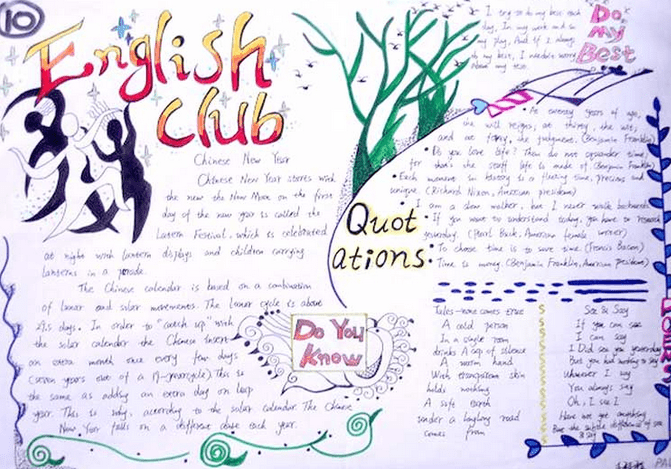 10
English
Club
Chinese New Year
Chinese New Year starts with
the new the New Moon on the first
day of the new year is called the
Latern Festival, which is celebrated
at night with lantern displays and children carrying
lanterns in a parade.
The Chinese calendar is based on a combination
of lunar and solar movements. The lunar cycle is about
29.5 days. In order to "catch up" with
the solar calendar the Chinese insert
an extra month once every few
years out of a This is
the same as adding an extra day on leap
year. This is why, according to the solar calendar. The Chinese
New Year falls on a different date each year.
Do You
Know
Do
My
Best
I try to do my best each
day, In my work and in
my play, And if I always
do my best, I needn't worry
About my
Quot
ations:
At twenty years of age,
the will reigns; at thirty, the wit;
and at forty, the judgment. (Benjamin Franklin)
Do you love life? Then do not squander time,
for that's the stuff life is made of (Benjamin Franklin)
Each moment in history is a fleeting time, precious and
unique. (Richard Nixon, American president)
I am a slow walker, but I never walk backwards.
If you want to understand today, you have to research
yesterday. (Pearl Buck, American female writer)
To choose time is to save time. (Francis Bacon)
Time is money. (Benjamin Franklin, American president)
Tales-none comes true
A cold person
In a single room
drinks A cup of silence
A warm hand
With transparent skin
holds nothing
A safe earth
under a laughing road
comes from
See & Say
If you can see
I can say
I Did see you yesterday
But you had nothing to say
Whatever I say
You always say
Oh, I see!
Have we got something
But the subtle difference of see
& say